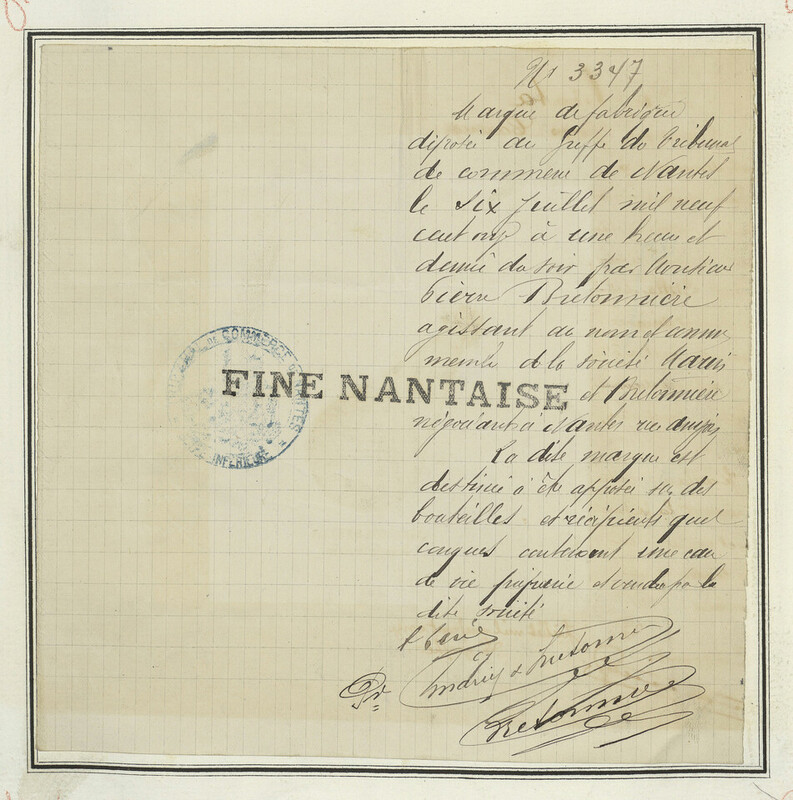 No 3347
Marque de fabrique
déposée au Greffe du Tribunal
de commerce de Nantes
le six Juillet mil neuf
cent onze à une heure et
demie du soir par Monsieur
Pierre Bretonnière
agissant au nom et comme
membre de la société Maris
FINE NANTAISE
et Bretonnière
négociants à Nantes rue
La dite marque est
destinée à être apposée sur des
bouteilles et récipients quel
conques contenant une eau
de vie préparée et vendue par la
dite société
TRIBUNAL DE COMMERCE DE NANTES
INFÉRIEURE
Pr
Bretonnière